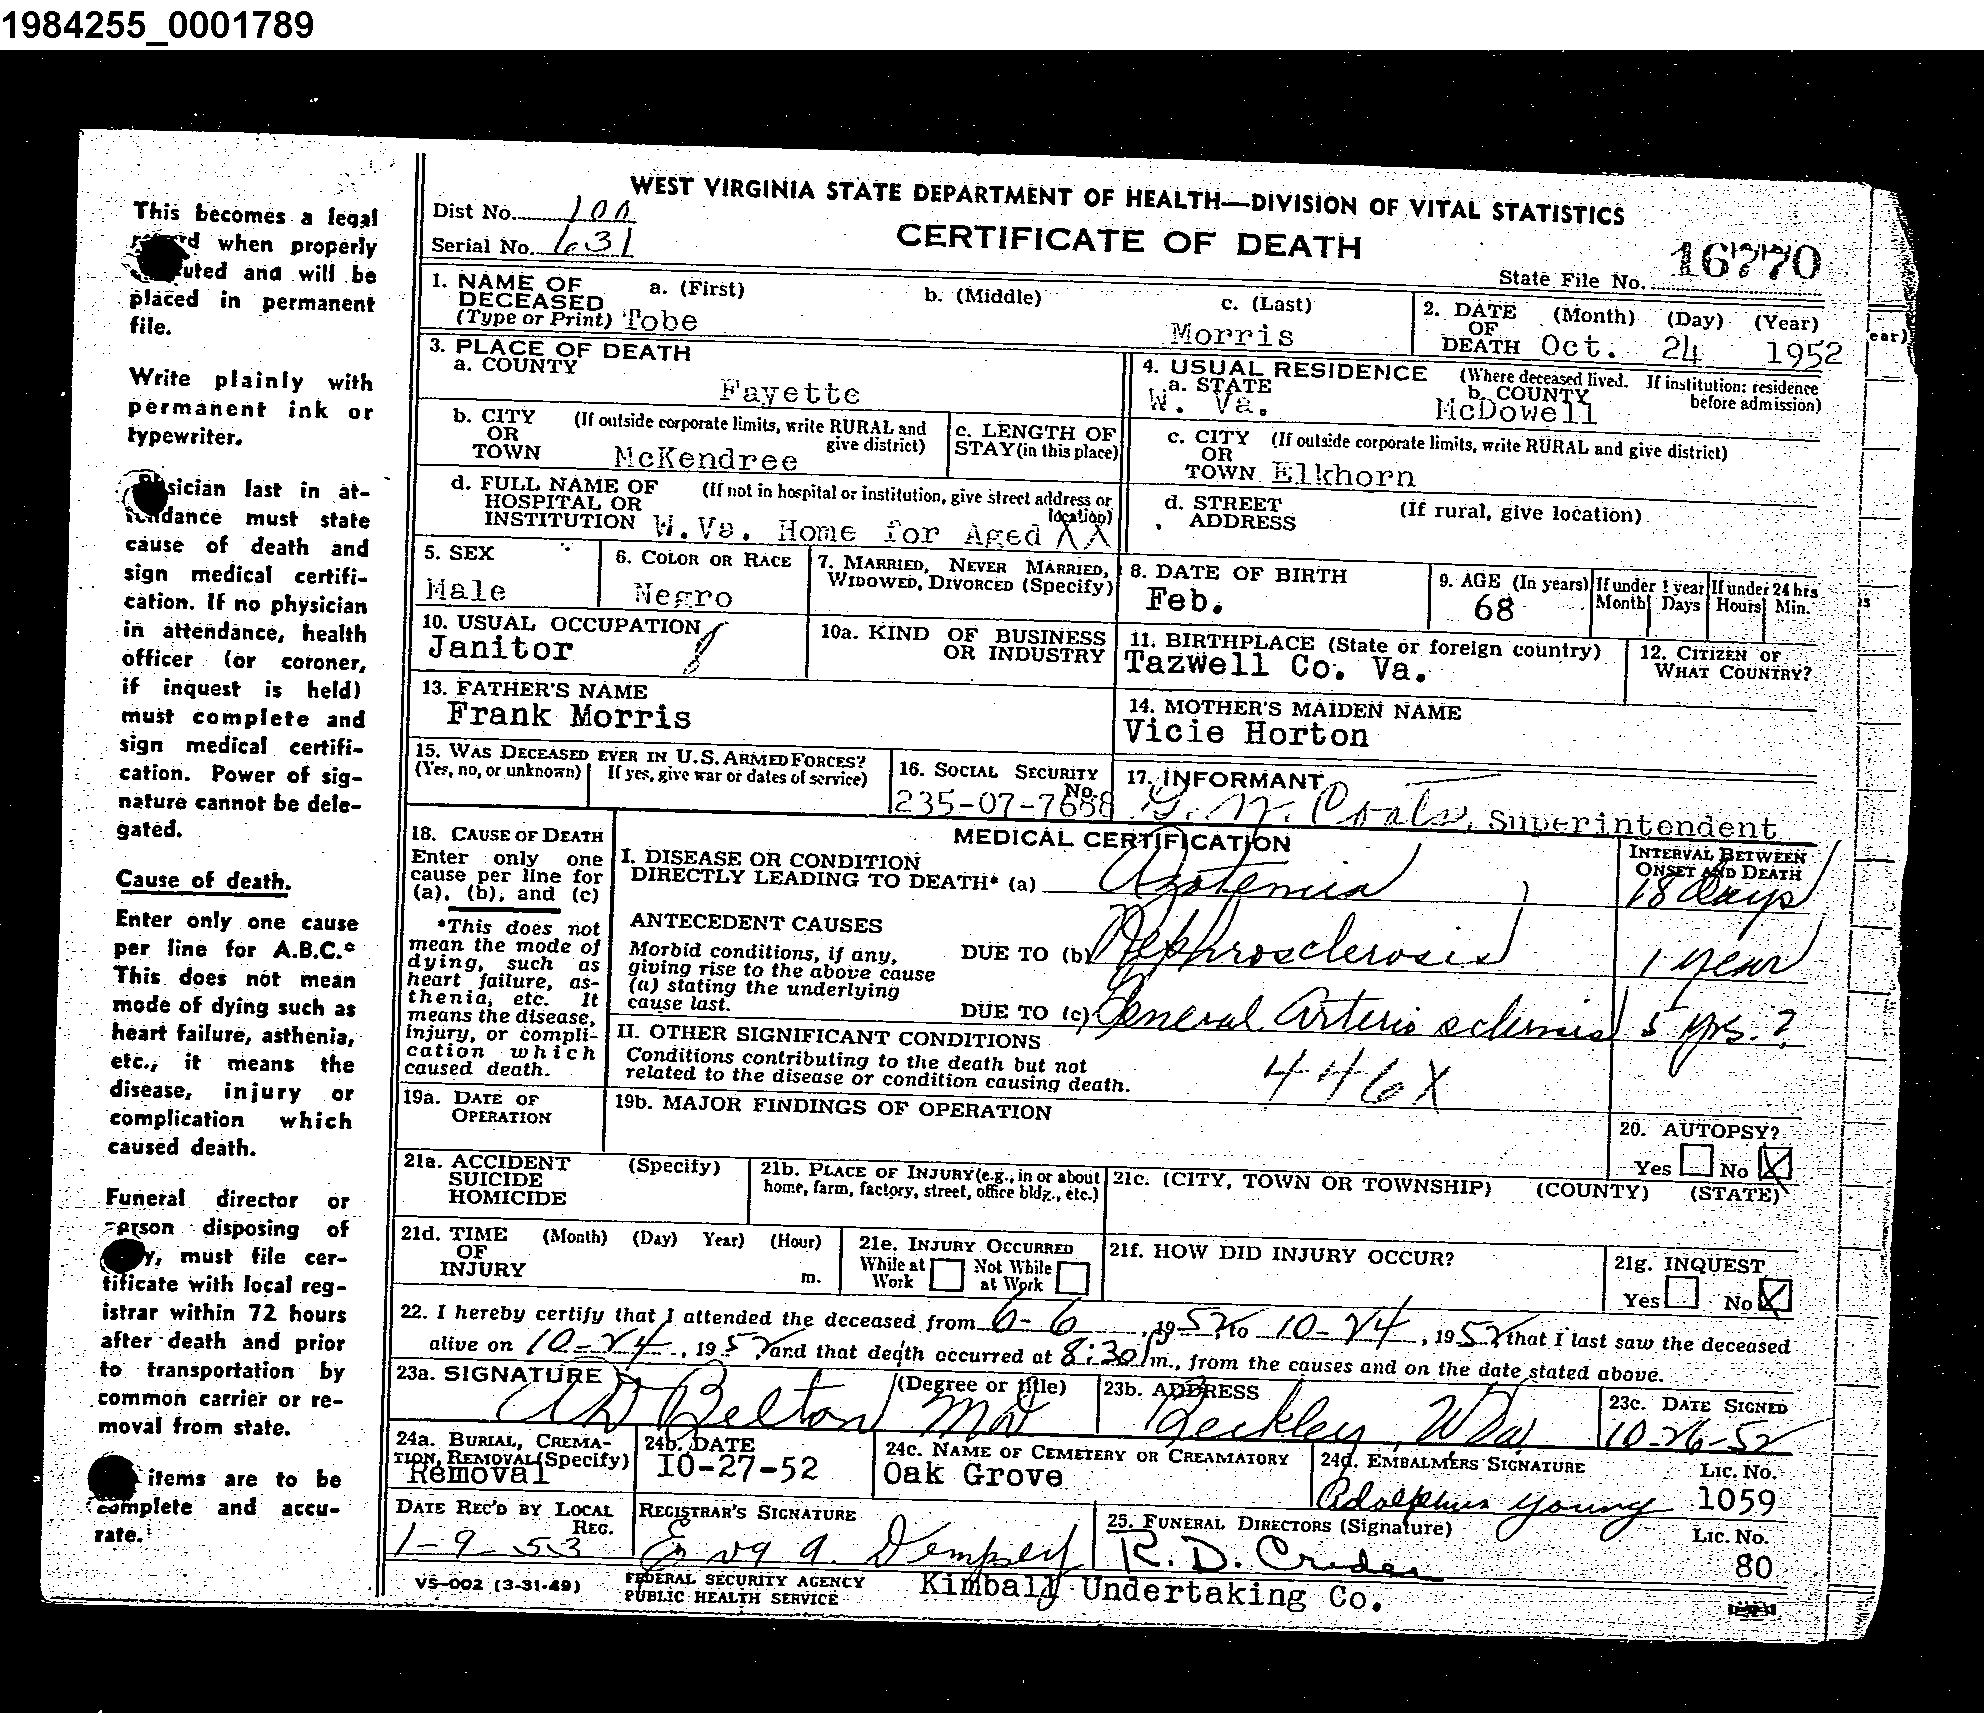 1984255_0001789
This becomes a legal
when properly
uted and will be
placed in permanent
file.
Write plainly with
permanent ink or
typewriter.
sician last in at-
tendance must state
cause of death and
sign medical certifi-
cation. If no physician
in attendance, health
officer (or coroner,
if inquest is held)
must complete and
sign medical certifi-
cation. Power of sig-
nature cannot be dele-
gated.
Cause of death.
Enter only one cause
per line for A.B.C.*
This does not mean
mode of dying such as
heart failure, asthenia,
etc., it means the
disease, injury or
complication which
caused death.
Funeral director or
person disposing of
y, must file cer-
tificate with local reg-
istrar within 72 hours
after death and prior
to transportation by
common carrier or re-
moval from state.
items are to be
complete and accu-
rate.
WEST VIRGINIA STATE DEPARTMENT OF HEALTH—DIVISION OF VITAL STATISTICS
Dist No. 100
Serial No. 631
CERTIFICATE OF DEATH
State File No. 16770
1. NAME OF DECEASED (Type or Print) a. (First) b. (Middle) c. (Last)
Tobe Morris
2. DATE OF DEATH (Month) (Day) (Year)
Oct. 24 1952
3. PLACE OF DEATH
a. COUNTY
Fayette
4. USUAL RESIDENCE (Where deceased lived. If institution: residence before admission)
a. STATE W. Va. b. COUNTY McDowell
b. CITY OR TOWN (If outside corporate limits, write RURAL and give district)
McKendree
c. LENGTH OF STAY (in this place)
c. CITY OR TOWN (If outside corporate limits, write RURAL and give district)
Elkhorn
d. FULL NAME OF HOSPITAL OR INSTITUTION (If not in hospital or institution, give street address or location)
W.Va. Home for Aged XX
d. STREET ADDRESS (If rural, give location)
5. SEX
Male
6. COLOR OR RACE
Negro
7. MARRIED, NEVER MARRIED, WIDOWED, DIVORCED (Specify)
8. DATE OF BIRTH
Feb.
9. AGE (In years) If under 1 year If under 24 hrs
Month Days Hours Min.
68
10. USUAL OCCUPATION
Janitor
10a. KIND OF BUSINESS OR INDUSTRY
11. BIRTHPLACE (State or foreign country)
Tazwell Co. Va.
12. CITIZEN OF WHAT COUNTRY?
13. FATHER'S NAME
Frank Morris
14. MOTHER'S MAIDEN NAME
Vicie Horton
15. WAS DECEASED EVER IN U.S. ARMED FORCES?
(Yes, no, or unknown) If yes, give war or dates of service)
16. SOCIAL SECURITY No.
235-07-7688
17. INFORMANT
G. W. Coats, Superintendent
18. CAUSE OF DEATH
Enter only one
cause per line for
(a), (b), and (c)
*This does not
mean the mode of
dying, such as
heart failure, as-
thenia, etc. It
means the disease,
injury, or compli-
cation which
caused death.
MEDICAL CERTIFICATION
INTERVAL BETWEEN ONSET AND DEATH
I. DISEASE OR CONDITION
DIRECTLY LEADING TO DEATH* (a) Azotemia 18 days
ANTECEDENT CAUSES
Morbid conditions, if any,
giving rise to the above cause
(a) stating the underlying
cause last.
DUE TO (b) Nephrosclerosis 1 year
DUE TO (c) General Arterio sclerosis 5 yrs.?
II. OTHER SIGNIFICANT CONDITIONS
Conditions contributing to the death but not
related to the disease or condition causing death.
446X
19a. DATE OF OPERATION
19b. MAJOR FINDINGS OF OPERATION
20. AUTOPSY?
Yes No X
21a. ACCIDENT SUICIDE HOMICIDE (Specify)
21b. PLACE OF INJURY (e.g., in or about home, farm, factory, street, office bldg., etc.)
21c. (CITY, TOWN OR TOWNSHIP) (COUNTY) (STATE)
21d. TIME OF INJURY (Month) (Day) Year) (Hour) m.
21e. INJURY OCCURRED
While at Work Not While at Work
21f. HOW DID INJURY OCCUR?
21g. INQUEST
Yes No X
22. I hereby certify that I attended the deceased from 6-6, 1952, to 10-24, 1952 that I last saw the deceased
alive on 10-24, 1952, and that death occurred at 8:30 m., from the causes and on the date stated above.
23a. SIGNATURE (Degree or title)
A D Belton MD
23b. ADDRESS
Beckley, W Va
23c. DATE SIGNED
10-26-52
24a. BURIAL, CREMA-
TION, REMOVAL (Specify)
Removal
24b. DATE
10-27-52
24c. NAME OF CEMETERY OR CREAMATORY
Oak Grove
24d. EMBALMERS SIGNATURE Lic. No.
Adolphus Young 1059
DATE REC'D BY LOCAL REG.
1-9-53
REGISTRAR'S SIGNATURE
Dempsey
25. FUNERAL DIRECTORS (Signature) Lic. No.
R. D. 80
VS-002 (3-31-49)
FEDERAL SECURITY AGENCY
PUBLIC HEALTH SERVICE
Kimball Undertaking Co.
ear)